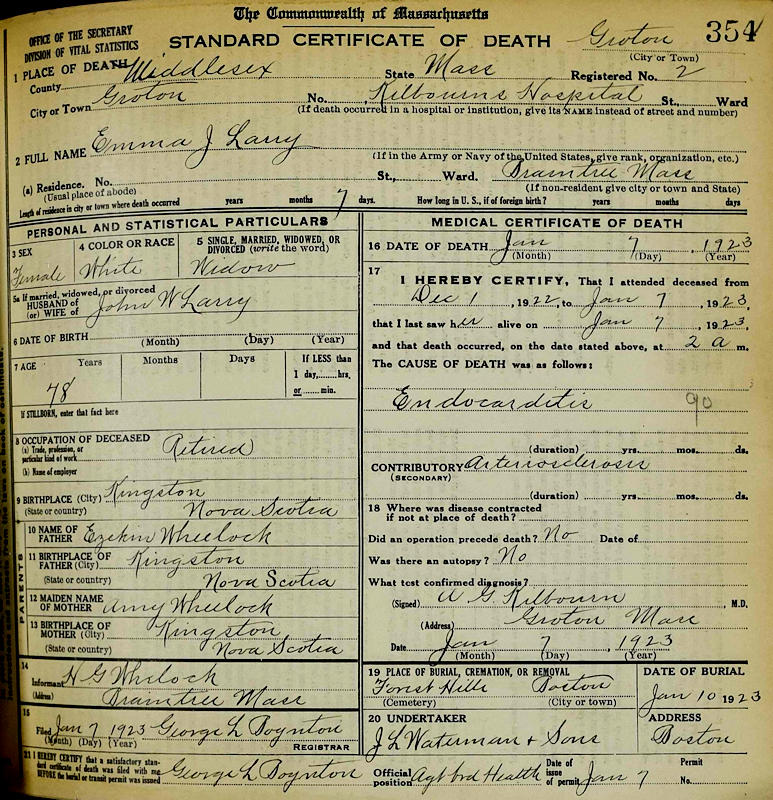 The Commonwealth of Massachusetts
OFFICE OF THE SECRETARY
DIVISION OF VITAL STATISTICS
STANDARD CERTIFICATE OF DEATH
Groton
(City or Town)
354
1 PLACE OF DEATH
County Middlesex State Mass Registered No. 2
City or Town Groton No. Kilbourns Hospital St., Ward
(If death occurred in a hospital or institution, give its NAME instead of street and number)
2 FULL NAME Emma J Larry
(If in the Army or Navy of the United States, give rank, organization, etc.)
(a) Residence. No. St., Ward. Braintree Mass
(Usual place of abode) (If non-resident give city or town and State)
Length of residence in city or town where death occurred years months 7 days. How long in U. S., if of foreign birth? years months days
PERSONAL AND STATISTICAL PARTICULARS
3 SEX
Female
4 COLOR OR RACE
White
5 SINGLE, MARRIED, WIDOWED, OR
DIVORCED (write the word)
Widow
5a If married, widowed, or divorced
HUSBAND of
(or) WIFE of John W Larry
6 DATE OF BIRTH
(Month) (Day) (Year)
7 AGE Years Months Days
78
If LESS than
1 day,......hrs.
or......min.
If STILLBORN, enter that fact here
8 OCCUPATION OF DECEASED
(a) Trade, profession, or
particular kind of work Retired
(b) Name of employer
9 BIRTHPLACE (City) Kingston
(State or country) Nova Scotia
PARENTS
10 NAME OF
FATHER Ezekin Wheelock
11 BIRTHPLACE OF
FATHER (City) Kingston
(State or country) Nova Scotia
12 MAIDEN NAME
OF MOTHER Amy Wheelock
13 BIRTHPLACE OF
MOTHER (City) Kingston
(State or country) Nova Scotia
14
Informant H G Whelock
(Address) Braintree Mass
15
Filed Jan 7 1923 George L Boynton
(Month) (Day) (Year) REGISTRAR
MEDICAL CERTIFICATE OF DEATH
16 DATE OF DEATH Jan 7, 1923
(Month) (Day) (Year)
17
I HEREBY CERTIFY, That I attended deceased from
Dec 1, 1922, to Jan 7, 1923,
that I last saw her alive on Jan 7, 1923,
and that death occurred, on the date stated above, at 2 a m.
The CAUSE OF DEATH was as follows:
Endocarditis 90
(duration) yrs. mos. ds.
CONTRIBUTORY Arteriosclerosis
(SECONDARY)
(duration) yrs. mos. ds.
18 Where was disease contracted
if not at place of death?
Did an operation precede death? No Date of
Was there an autopsy? No
What test confirmed diagnosis?
(Signed) A G Kilbourn, M.D.
(Address) Groton Mass
Date Jan 7, 1923
(Month) (Day) (Year)
19 PLACE OF BURIAL, CREMATION, OR REMOVAL
Forest Hills Boston
(Cemetery) (City or town)
DATE OF BURIAL
Jan 10 1923
20 UNDERTAKER
J L Waterman + Sons
ADDRESS
Boston
21 I HEREBY CERTIFY that a satisfactory stan-
dard certificate of death was filed with me
BEFORE the burial or transit permit was issued George L Boynton
Official
position Agt brd Health
Date of
issue
of permit Jan 7
Permit
No.